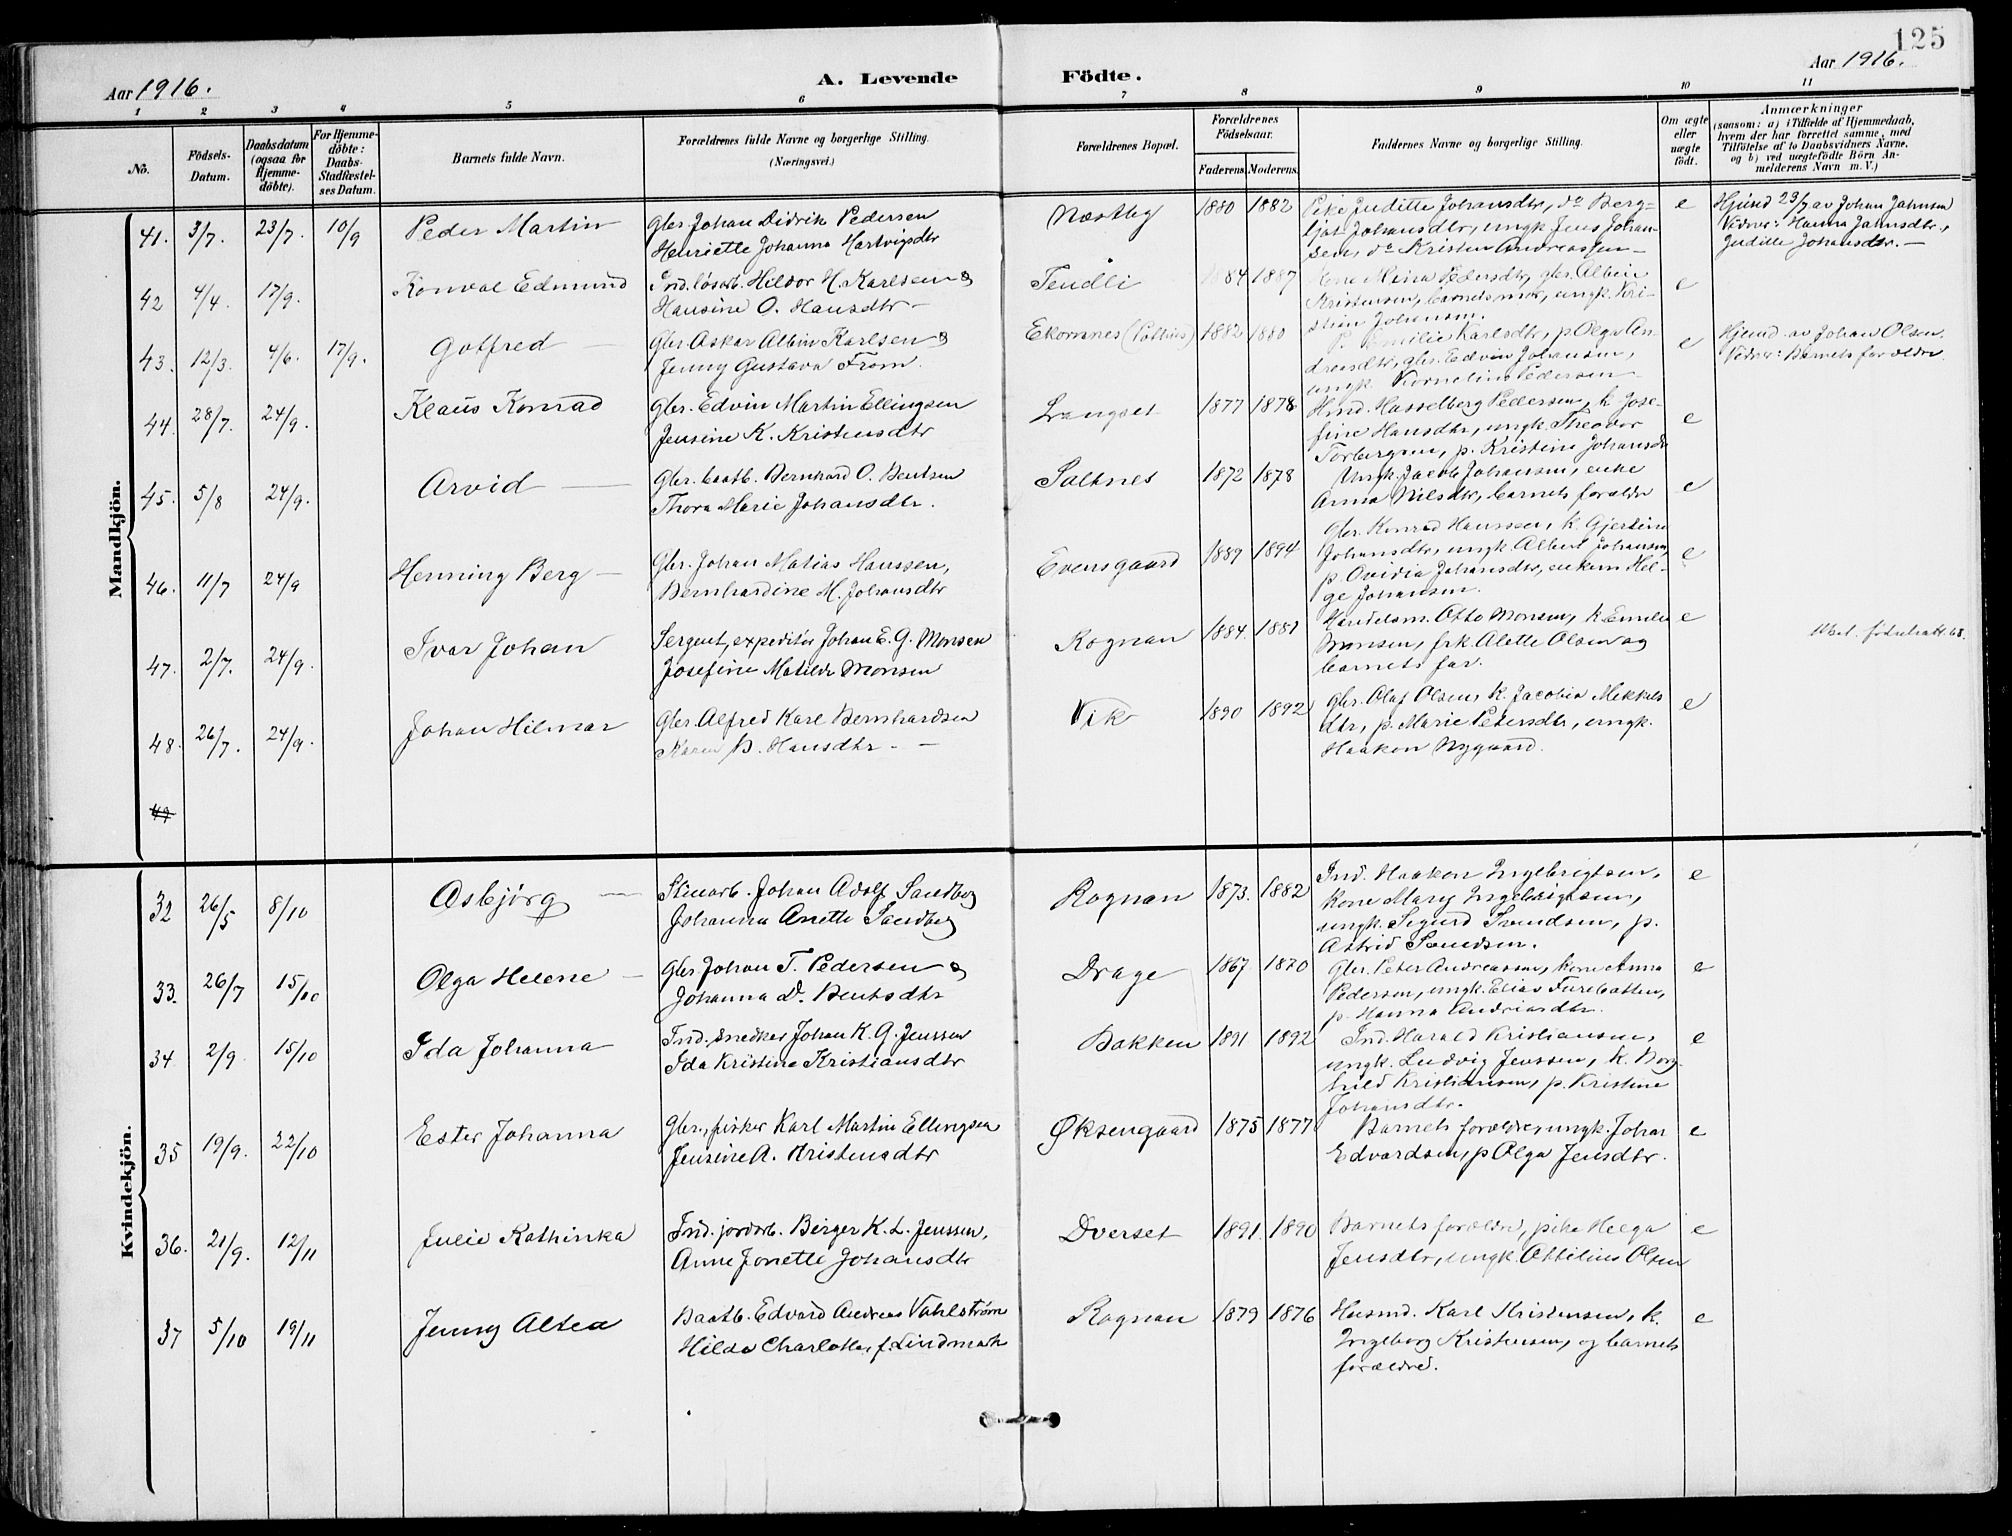 125
Aar 1916.
A. Levende Födte.
Aar 1916.
1 2 3 4 5 6 7 8 9 10 11
No.
Födsels-Datum.
Daabsdatum (ogsaa for Hjemme-döbte).
For Hjemme-döbte: Daabs-Stadfæstel-ses Datum.
Barnets fulde Navn.
Forældrenes fulde Navne og borgerlige Stilling.
(Næringsvei.)
Forældrenes Bopæl.
Forældrenes Födselsaar.
Faderens. Moderens.
Faddernes Navne og borgerlige Stilling.
Om ægte eller uægte födt.
Anmærkninger
(saasom: a) i Tilfælde af Hjemmedaab,
hvem der har forrettet samme, med
Tilföielse af to Daabsvidners Navne,
og b) ved uægtefödte Börn An-
melderens Navn m. V.)
Mandkjön.
41. 3/7. 23/7. 10/9 Peder Martin
Gbr. Johan Didrik Pedersen
Henriette Johanna Hartvigsdtr
Næstby 1880 1882
Pike Juditte Johansdtr, do Berg-
ljot Johansdtr, ungk Jens Johan-
sen, do Kristen Andreassen
e
Hjmd 23/7 av Johan Jahnsen
Vidner: Hanna Jahnsdtr.,
Juditte Johansdtr. —
42 4/4. 17/9. Konval Edmund
Ind. løsarb. Hildor H. Karlsen &
Hansine O. Hansdtr —
1884 1887
Kone Mina Pedersdtr, gbr. Albin
Kristensen, barnets mor, ungk. Kri-
stian Johansen.
e
43. 12/3. 4/6. 17/9. Gotfred —
Gbr. Oskar Albin Karlsen &
Jenny Gustava From.
Ekornnes 1882 1880
P. Emilie Karlsdtr, p Olga An-
dreasdtr, gbr. Edvin Johansen,
ungk. Kornelius Pedersen
e
Hjemd. av Johan Olsen.
Vidner: Barnets forældre
44. 28/7. 24/9. Klaus Konrad
Gbr. Edvin Martin Ellingsen
Jensine K. Kristensdtr
Langset 1877 1878
Hmd. Hasselberg Pedersen, k Jose-
fine Hansdtr, ungk. Theodor
Torbergsen, p. Kristine Johansdtr
e
45. 5/8 24/9. Arvid —
Gbr. baatb. Bernhard O. Bentsen
Thora Marie Johansdtr.
Saltnes 1872 1878
Ungk. Jacob Johansen, enke
Anna Nilsdtr, barnets forældre
e
46. 11/7 24/9 Henning Berg —
Gbr. Johan Matias Hanssen,
Bernhardine M. Johansdtr
Evensgaard 1889 1894
Gbr. Konrad Hanssen, k. Gjertine
Johansdtr, ungk Albert Johansen,
p. Ovidia Johansdtr, enkem Hel-
ge Johansen.
e
47. 2/7. 24/9. Ivar Johan
Sergent, expeditör Johan E. G. Monsen
Josefine Matilde Monsen
Rognan 1884. 1881
Handelsm. Otto Monsen, k Emilie
Monsen, frk. Alette Olsen og
barnets far.
e
48. 26/7. 24/9. Johan Hilmar
Gbr. Alfred Karl Bernhardsen
Karen B. Hansdtr — —
Vik 1890 1892
Gbr. Olaf Olsen, K. Jacobia Mekkels
dtr, p. Marie Petersdtr, ungk.
Haakon Nygaard.
e
49
Kvindekjön.
32 26/5 8/10 Asbjörg —
Stenarb. Johan Adolf Sandberg
Johanna Anette Sandberg
Rognan 1873. 1882
Ind. Haakon Ingebrigtsen,
kone Mary Ingebrigtsen,
ungk. Sigurd Svendsen, p.
Astrid Svendsen.
e
33. 26/7 15/10 Olga Helene —
Gbr. Johan T. Pedersen &
Johanna D. Bentsdtr
Drage 1867 1870
Gbr. Peter Andreassen, kone Anna
Pedersen, ungk. Elias
p. Hanna Andreasdtr.
e
34 2/9. 15/10 Ida Johanna
Ind. snedker Johan K. G. Jenssen
Ida Kristine Kristiansdtr
Bakken 1891 1892
Ind. Harald Kristiansen,
ungk. Ludvig Jenssen, k. Borg-
hild Kristiansen, p. Kristine
Johansdtr.
e
35 19/9. 22/10 Ester Johanna
Gbr., fisker Karl Martin Ellingsen
Jensine A. Kristensdtr
Øksengaard 1875 1877
Barnets forældre, ungk. Johan
Edvardsen, p Olga Jensdtr.
e
36. 21/9. 12/11 Julie Kathinka
Ind. jordarb. Birger K. L. Jenssen,
Anne Jonette Johansdtr
Dverset 1891. 1890
Barnets forældre, pike Helga
Jensdtr, ungk. Ottilius Olsen
e
37 5/10 19/11 Jenny Altea
Baatb. Edvard Andreas Vahlström
Hilda Charlotta f. Lindmark
Rognan 1879 1876
Husmd. Karl Kristensen, k.
Ingeborg Kristensen, og barnets
forældre.
e